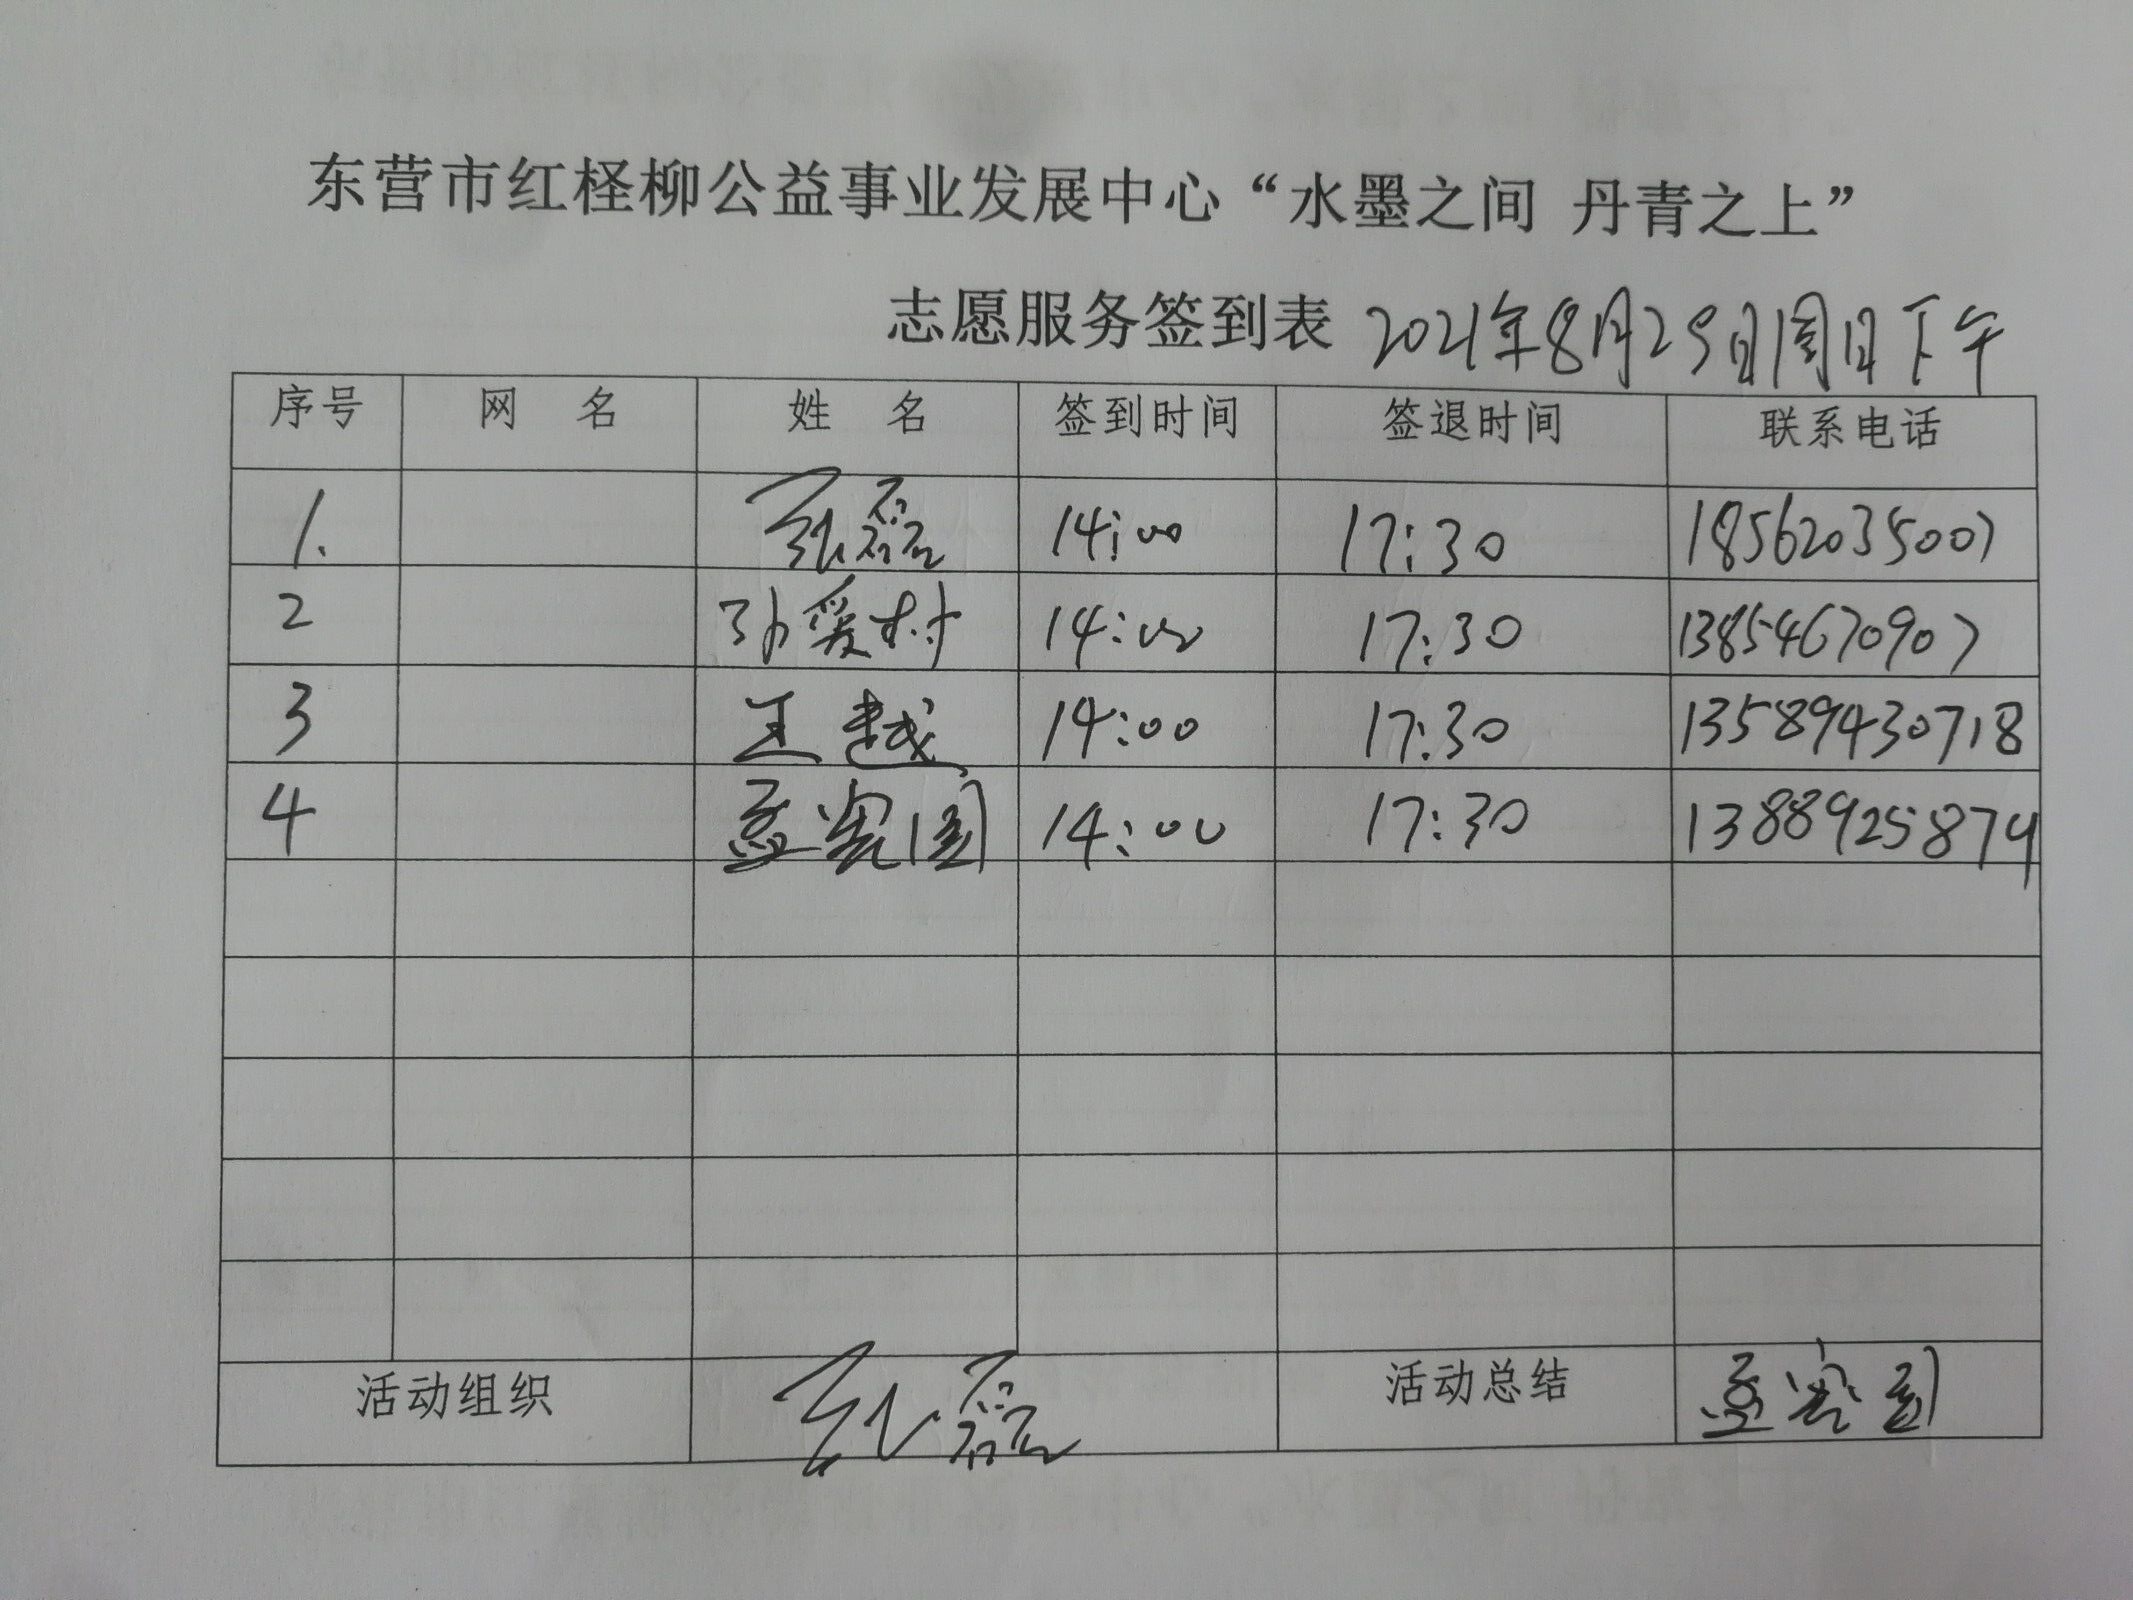 东营市红柽柳公益事业发展中心“水墨之间 丹青之上”
志愿服务签到表 2021年8月29日周日下午
序号 网 名 姓 名 签到时间 签退时间 联系电话
1. 张磊 14:00 17:30 18562035007
2 孙爱村 14:00 17:30 13854670907
3 王越 14:00 17:30 13589430718
4 孟宪国 14:00 17:30 1388925874
活动组织 张磊 活动总结 孟宪国